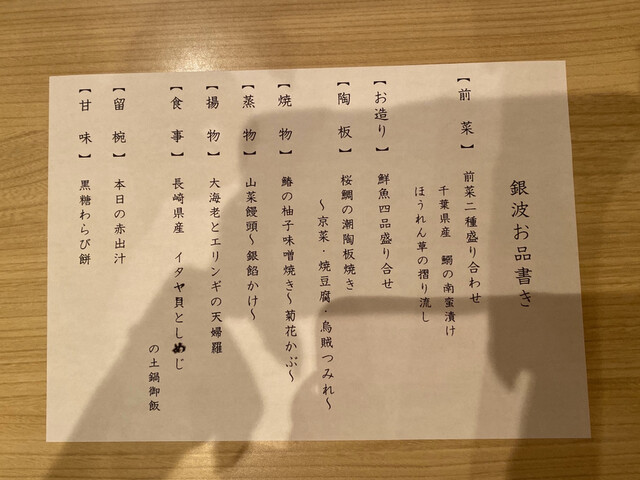 銀波お品書き
【前菜】 前菜二種盛り合わせ
千葉県産 鰯の南蛮漬け
ほうれん草の摺り流し
【お造り】 鮮魚四品盛り合せ
【陶板】 桜鯛の潮陶板焼き
～京菜・焼豆腐・烏賊つみれ～
【焼物】 鰆の柚子味噌焼き～菊花かぶ～
【蒸物】 山菜饅頭～銀餡かけ～
【揚物】 大海老とエリンギの天婦羅
【食事】 長崎県産 イタヤ貝としめじ
の土鍋御飯
【留椀】 本日の赤出汁
【甘味】 黒糖わらび餅